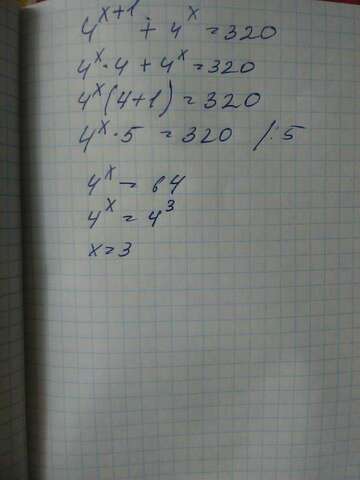 4^{x+1} + 4^x = 320
4^x · 4 + 4^x = 320
4^x (4+1) = 320
4^x · 5 = 320 /:5
4^x = 64
4^x = 4^3
x = 3